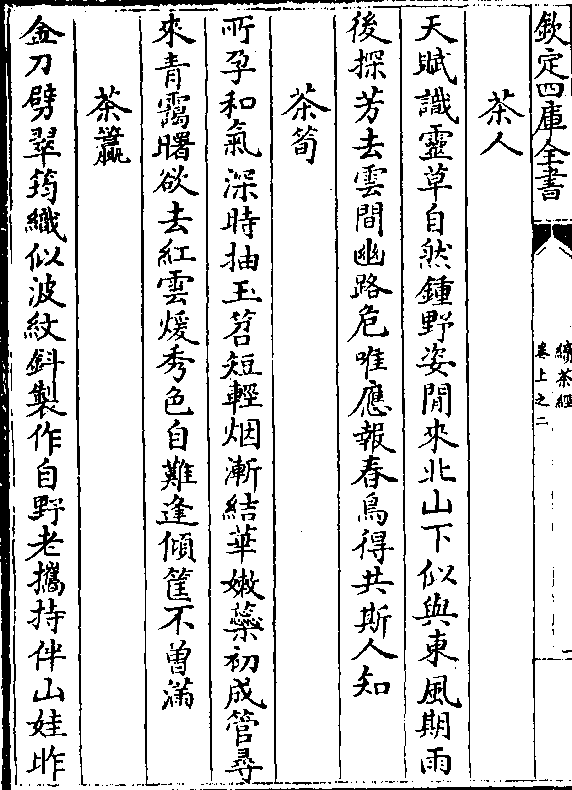 欽定四庫全書
續茶經
卷上之二
茶人
天賦識靈草自然鍾野姿閒來北山下似與東風期雨
後探芳去雲間幽路危唯應報春鳥得共斯人知
茶筍
所孕和氣深時抽玉苕短輕烟漸結華嫩蘂初成管尋
來青靄曙欲去紅雲煖秀色自難逢傾筐不曾滿
茶籯
金刀劈翠筠織似波紋斜製作自野老攜持伴山娃昨